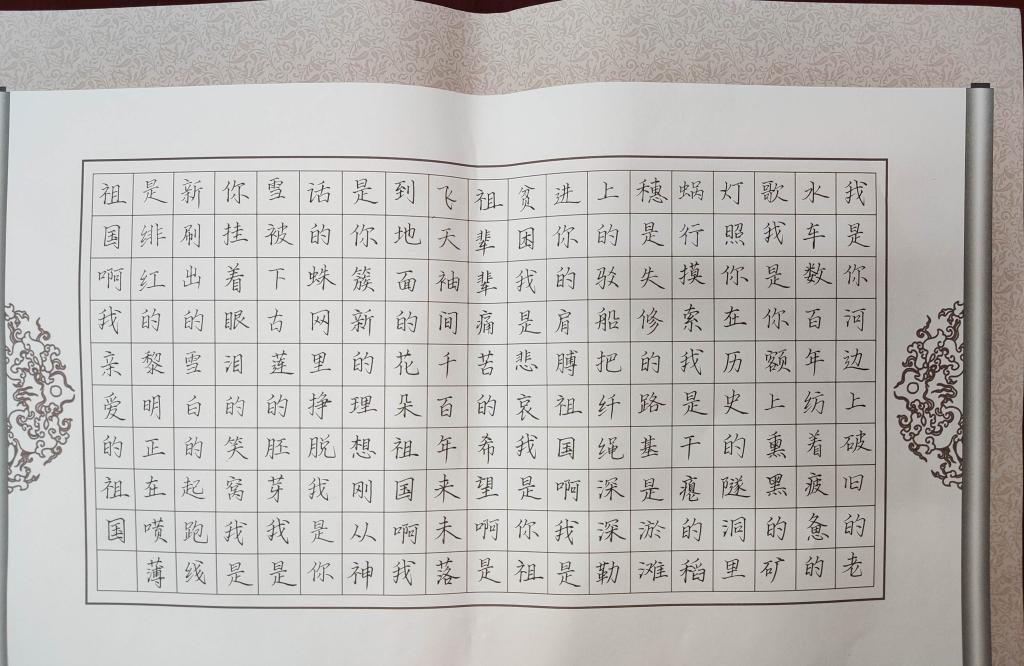 我是你河边上破旧的老
水车数百年纺着疲惫的
歌我是你额上熏黑的矿
灯照你在历史的隧洞里
蜗行摸索我是干瘪的稻
穗是失修的路基是淤滩
上的驳船把纤绳深深勒
进你的肩膊祖国啊我是
贫困我是悲哀我是你祖
祖辈辈痛苦的希望啊是
飞天袖间千百年来未落
到地面的花朵祖国啊我
是你簇新的理想刚从神
话的蛛网里挣脱我是你
雪被下古莲的胚芽我是
你挂着眼泪的笑窝我是
新刷出的雪白的起跑线
是绯红的黎明正在喷薄
祖国啊我亲爱的祖国